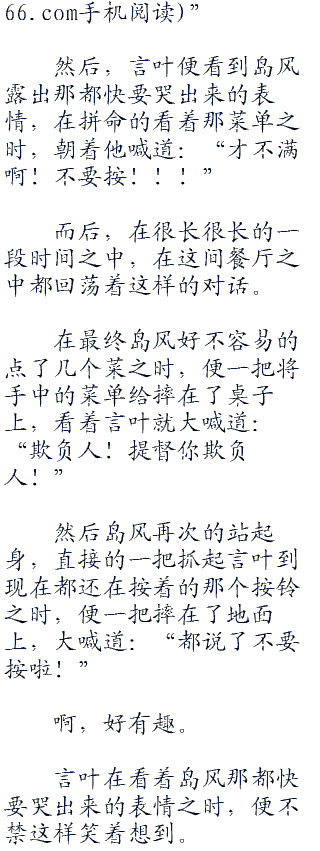 66.com手机阅读)”
然后，言叶便看到岛风
露出那都快要哭出来的表
情，在拼命的看着那菜单之
时，朝着他喊道：“才不满
啊！不要按！！！”
而后，在很长很长的一
段时间之中，在这间餐厅之
中都回荡着这样的对话。
在最终岛风好不容易的
点了几个菜之时，便一把将
手中的菜单给摔在了桌子
上，看着言叶就大喊道：
“欺负人！提督你欺负
人！”
然后岛风再次的站起
身，直接的一把抓起言叶到
现在都还在按着的那个按铃
之时，便一把摔在了地面
上，大喊道：“都说了不要
按啦！”
啊，好有趣。
言叶在看着岛风那都快
要哭出来的表情之时，便不
禁这样笑着想到。